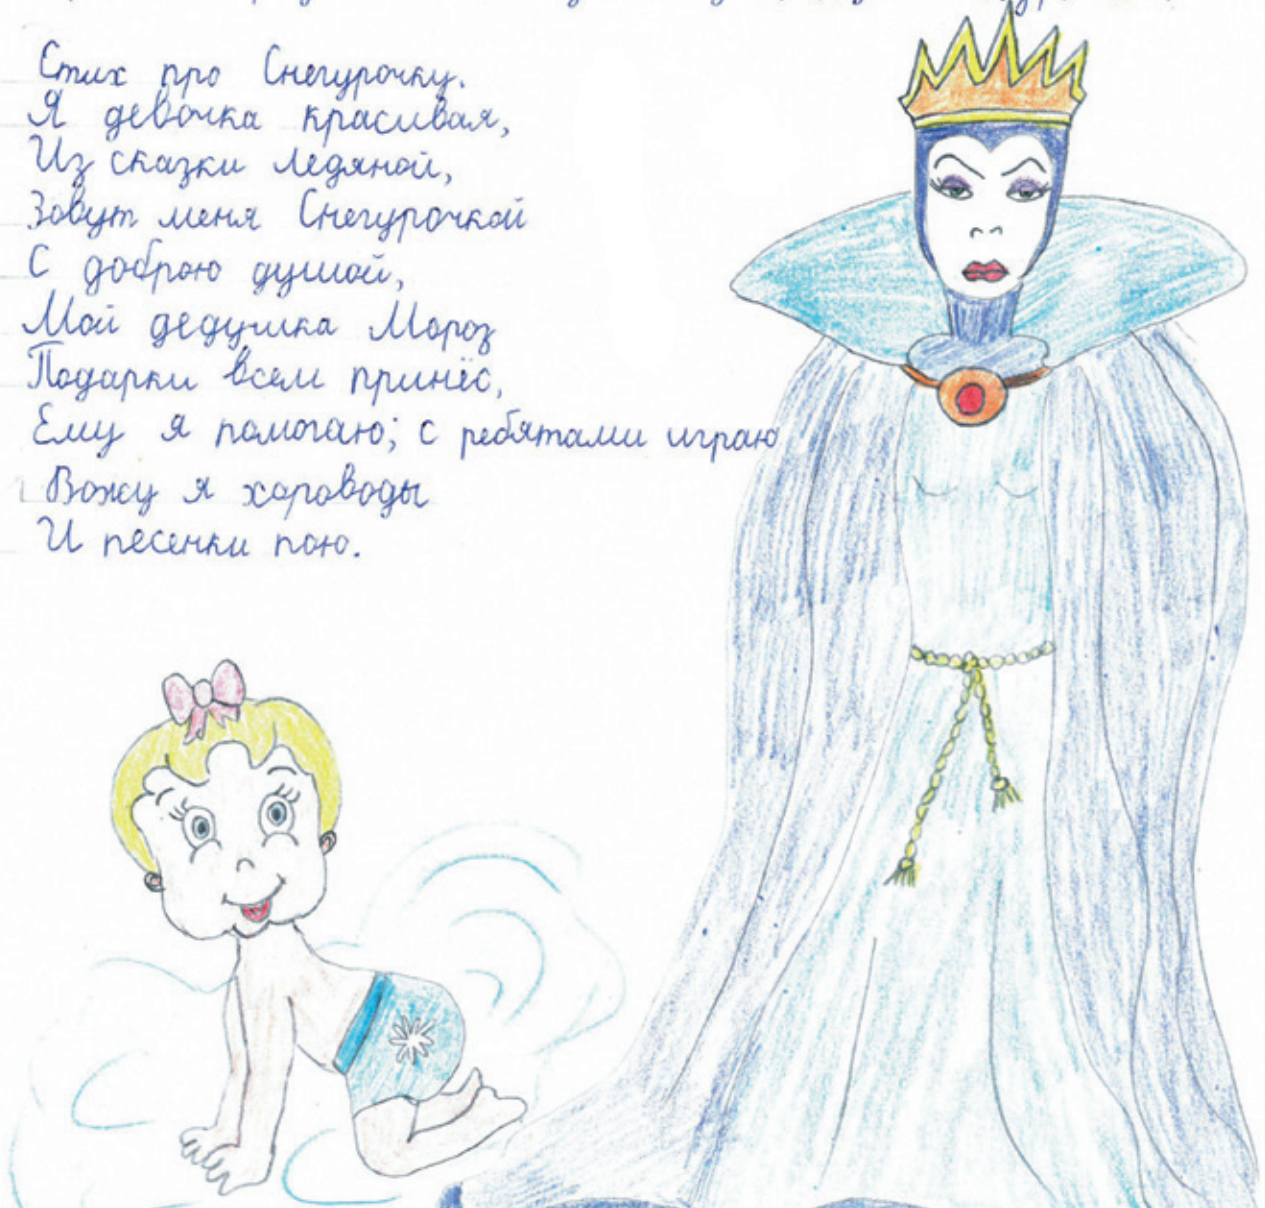 Стих про Снегурочку.
Я девочка красивая,
Из сказки ледяной,
Зовут меня Снегурочкой
С доброю душой,
Мой дедушка Мороз
Подарки всем принёс,
Ему я помогаю; с ребятами играю
Вожу я хороводы
И песенки пою.